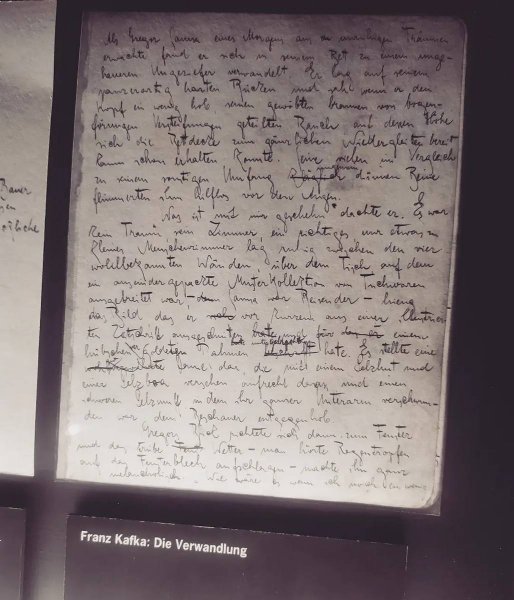 Als Gregor Samsa eines Morgens aus unruhigen Träumen
erwachte fand er sich in seinem Bet zu einem unge-
heueren Ungeziefer verwandelt. Er lag auf seinem
panzerartig harten Rücken und sah wenn er den
Kopf ein wenig hob seinen gewölbten braunen von bogen-
förmigen Versteifungen geteilten Bauch auf dessen Höhe
sich die Betdecke zum gänzlichen Niedergleiten bereit
kaum noch erhalten konnte. Seine vielen im Vergleich
zu seinem sonstigen Umfang dünnen Beine
flimmerten ihm hilflos vor den Augen.
Was ist mit mir geschehn? dachte er. Es war
kein Traum sein Zimmer ein richtiges nur etwas zu
kleines Menschenzimmer lag ruhig zwischen den vier
wohlbekannten Wänden über dem Tisch auf dem
ein auseinandergepackte Musterkollektion von Tuchwaren
ausgebreitet war - Samsa war Reisender - hieng
das Bild das er vor kurzem aus einer illustrier-
ten Zeitschrift ausgeschnitten und in einem
hübschen goldeten Rahmen hatte. Es stellte eine
Dame dar, die mit einem Pelzhut und
einer Pelzboa versehen aufrecht dasass und einen
schweren Pelzmuff in dem ihr ganzer Unterarm verschwun-
den war dem Beschauer entgegenhob.
Gregors Blick richtete sich dann zum Fenster
und das trübe Wetter - man hörte Regentropfen
auf das Fensterblech aufschlagen - machte ihn ganz
melancholisch. Wie wäre es wenn ich noch ein wenig
Franz Kafka: Die Verwandlung